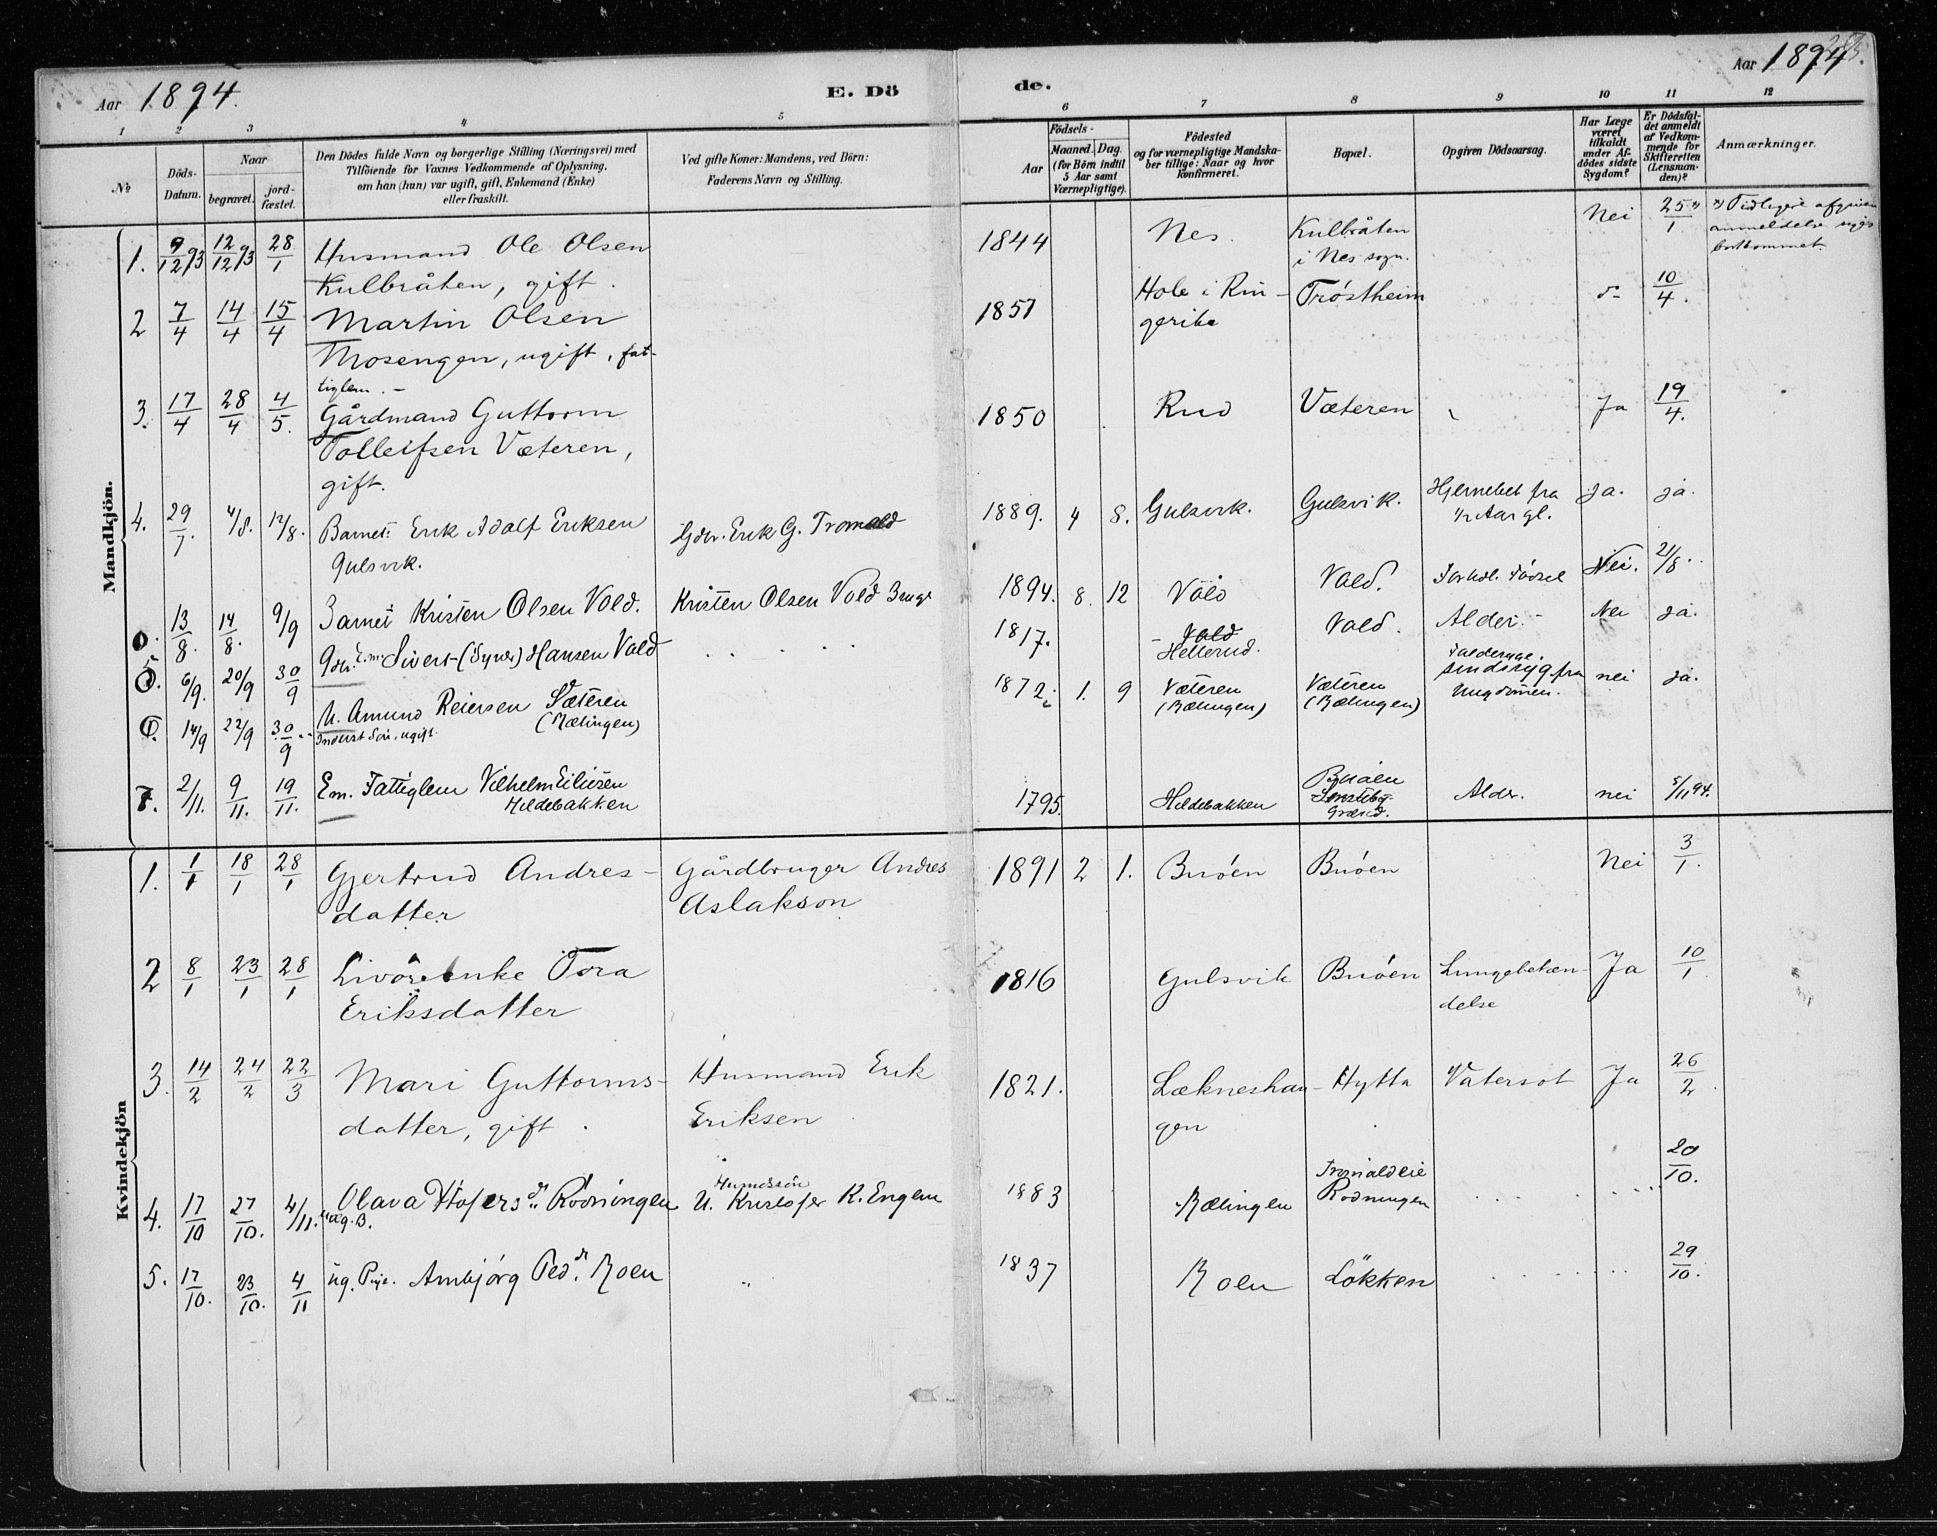 Aar 1894.
E. Dö
de.
Aar 1894
1 2 3 4 5
6 7 8 9 10 11 12
No
Döds-Datum.
Naar
begravet.
jord-fæstet.
Den Dödes fulde Navn og borgerlige Stilling (Næringsvei) med
Tilföiende for Voxnes Vedkommende af Oplysning,
om han (hun) var ugift, gift, Enkemand (Enke)
eller fraskilt.
Ved gifte Koner: Mandens, ved Börn:
Faderens Navn og Stilling.
Aar
Födsels-
Maaned. Dag.
(for Börn indtil
5 Aar samt
Værnepligtige).
Födested
og for værnepligtige Mandska-
ber tillige: Naar og hvor
konfirmeret.
Bopæl.
Opgiven Dödsaarsag.
Har Læge
været
tilkaldt
under Af-
dödes sidste
Sygdom?
Er Dödsfal-
det anmeldt
af Vedkom-
mende for
Skifteretten
(Lensman-
den)?
Anmærkninger.
Mandkjön.
1. 9/12 93 12/12 93 28/1 Husmand Ole Olsen 1844 Nes. Kulbråten Nei 25/1 Tidligere
Kulbråten, gift. i Nes sogn. anmeldelse
bortkommet.
2 7/4 14/4 15/4 Martin Olsen 1857 Hole i Rin- Tröstheim d- 10/4.
Mosengen, ugift, fat- gerike
tiglem. -
3. 17/4 28/4 4/5. Gårdmand Guttorm 1850 Rud Væteren Ja 19/4.
Tolleifsen Væteren,
gift.
4. 29/7. 4/8. 12/8. Barnet: Erik Adolf Eriksen Gdbr. Erik G. Tromald 1889. 4 8. Gulsvik. Gulsvik. Hjernebet fra ja. ja.
Gulsvik. 1/2 Aar gl.
13/8. 14/8. 9/9 Barnet Kristen Olsen Vold. Kristen Olsen Vold 1894. 8. 12 Vold Vald. Födsel Nei. 21/8.
6/9. 20/9 30/9 Sivert (Syver) Hansen Vold 1817. Vold Vold. Alder. - Nei ja.
Hellerud.
14/9 22/9 30/9 U. Amund Reiersen Væteren 1872. 1. 9 Væteren Væteren Faldesyge. sindssyg fra nei ja.
Inderst Sön, ugift. (Rælingen) (Rælingen) (Rælingen) Ungdommen.
7. 2/11. 9/11. 19/11. Em. Fattiglem Vilhelm 1795. Hildebakken Buöen Alder. nei 5/11 94.
Hildebakken
Kvindekjön
1. 1/1 18/1 28/1 Gjertrud Andres- Gårdbruger Andres 1891 2 1. Buöen Buöen Nei 3/1.
datter Aslakson
2 8/1 23/1 28/1 Livöreenke Tora 1816 Gulsvik Buöen Lungebetæn- Ja 10/1
Eriksdatter delse
3. 14/2 24/2 22/3 Mari Guttorms- Husmand Erik 1821. Lækneshau- Hytta Vatersot Ja 26/2.
datter, gift. Eriksen gen
4. 17/10 27/10. 4/11. Olava Kristofersdr. Rödningen U. Kristofer K. Engen 1883 Rælingen Tromaldeie 20/10.
Rodningen
5. 17/10. 23/10. 4/11 ug. Pige. Ambjörg Pedr. Roen " 1837 Roen Lökken 29/10.